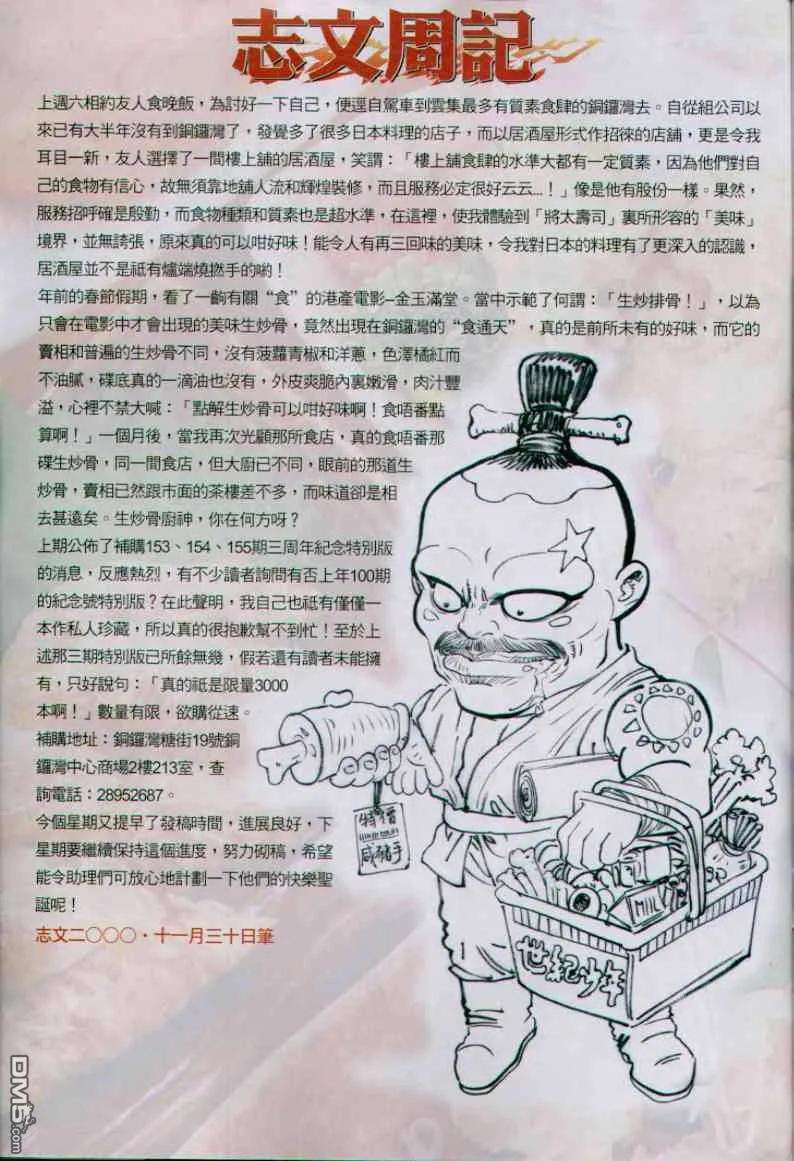 志文周記
上週六相約友人食晚飯，為討好一下自己，便逕自駕車到雲集最多有質素食肆的銅鑼灣去。自從組公司以
來已有大半年沒有到銅鑼灣了，發覺多了很多日本料理的店子，而以居酒屋形式作招徠的店舖，更是令我
耳目一新，友人選擇了一間樓上舖的居酒屋，笑謂：「樓上舖食肆的水準大都有一定質素，因為他們對自
己的食物有信心，故無須靠地舖人流和輝煌裝修，而且服務必定很好云云…！」像是他有股份一樣。果然，
服務招呼確是殷勤，而食物種類和質素也是超水準，在這裡，使我體驗到「將太壽司」裏所形容的「美味」
境界，並無誇張，原來真的可以咁好味！能令人有再三回味的美味，令我對日本的料理有了更深入的認識，
居酒屋並不是祗有爐端燒撚手的喲！
年前的春節假期，看了一齣有關“食”的港產電影–金玉滿堂。當中示範了何謂：「生炒排骨！」，以為
只會在電影中才會出現的美味生炒骨，竟然出現在銅鑼灣的“食通天”，真的是前所未有的好味，而它的
賣相和普遍的生炒骨不同，沒有菠蘿青椒和洋蔥，色澤橘紅而
不油膩，碟底真的一滴油也沒有，外皮爽脆內裏嫩滑，肉汁豐
溢，心裡不禁大喊：「點解生炒骨可以咁好味啊！食唔番點
算啊！」一個月後，當我再次光顧那所食店，真的食唔番那
碟生炒骨，同一間食店，但大廚己不同，眼前的那道生
炒骨，賣相已然跟市面的茶樓差不多，而味道卻是相
去甚遠矣。生炒骨廚神，你在何方呀？
上期公佈了補購153、154、155期三周年紀念特別版
的消息，反應熱烈，有不少讀者詢問有否上年100期
的紀念號特別版？在此聲明，我自己也祗有僅僅一
本作私人珍藏，所以真的很抱歉幫不到忙！至於上
述那三期特別版已所餘無幾，假若還有讀者未能擁
有，只好說句：「真的祗是限量3000
本啊！」數量有限，欲購從速。
補購地址：銅鑼灣糖街19號銅
鑼灣中心商場2樓213室，查
詢電話：28952687。
今個星期又提早了發稿時間，進展良好，下
星期要繼續保持這個進度，努力砌稿，希望
能令助理們可放心地計劃一下他們的快樂聖
誕呢！
志文二〇〇〇・十一月三十日筆
特價
咸豬手
MILK
世紀少年
DM5.com